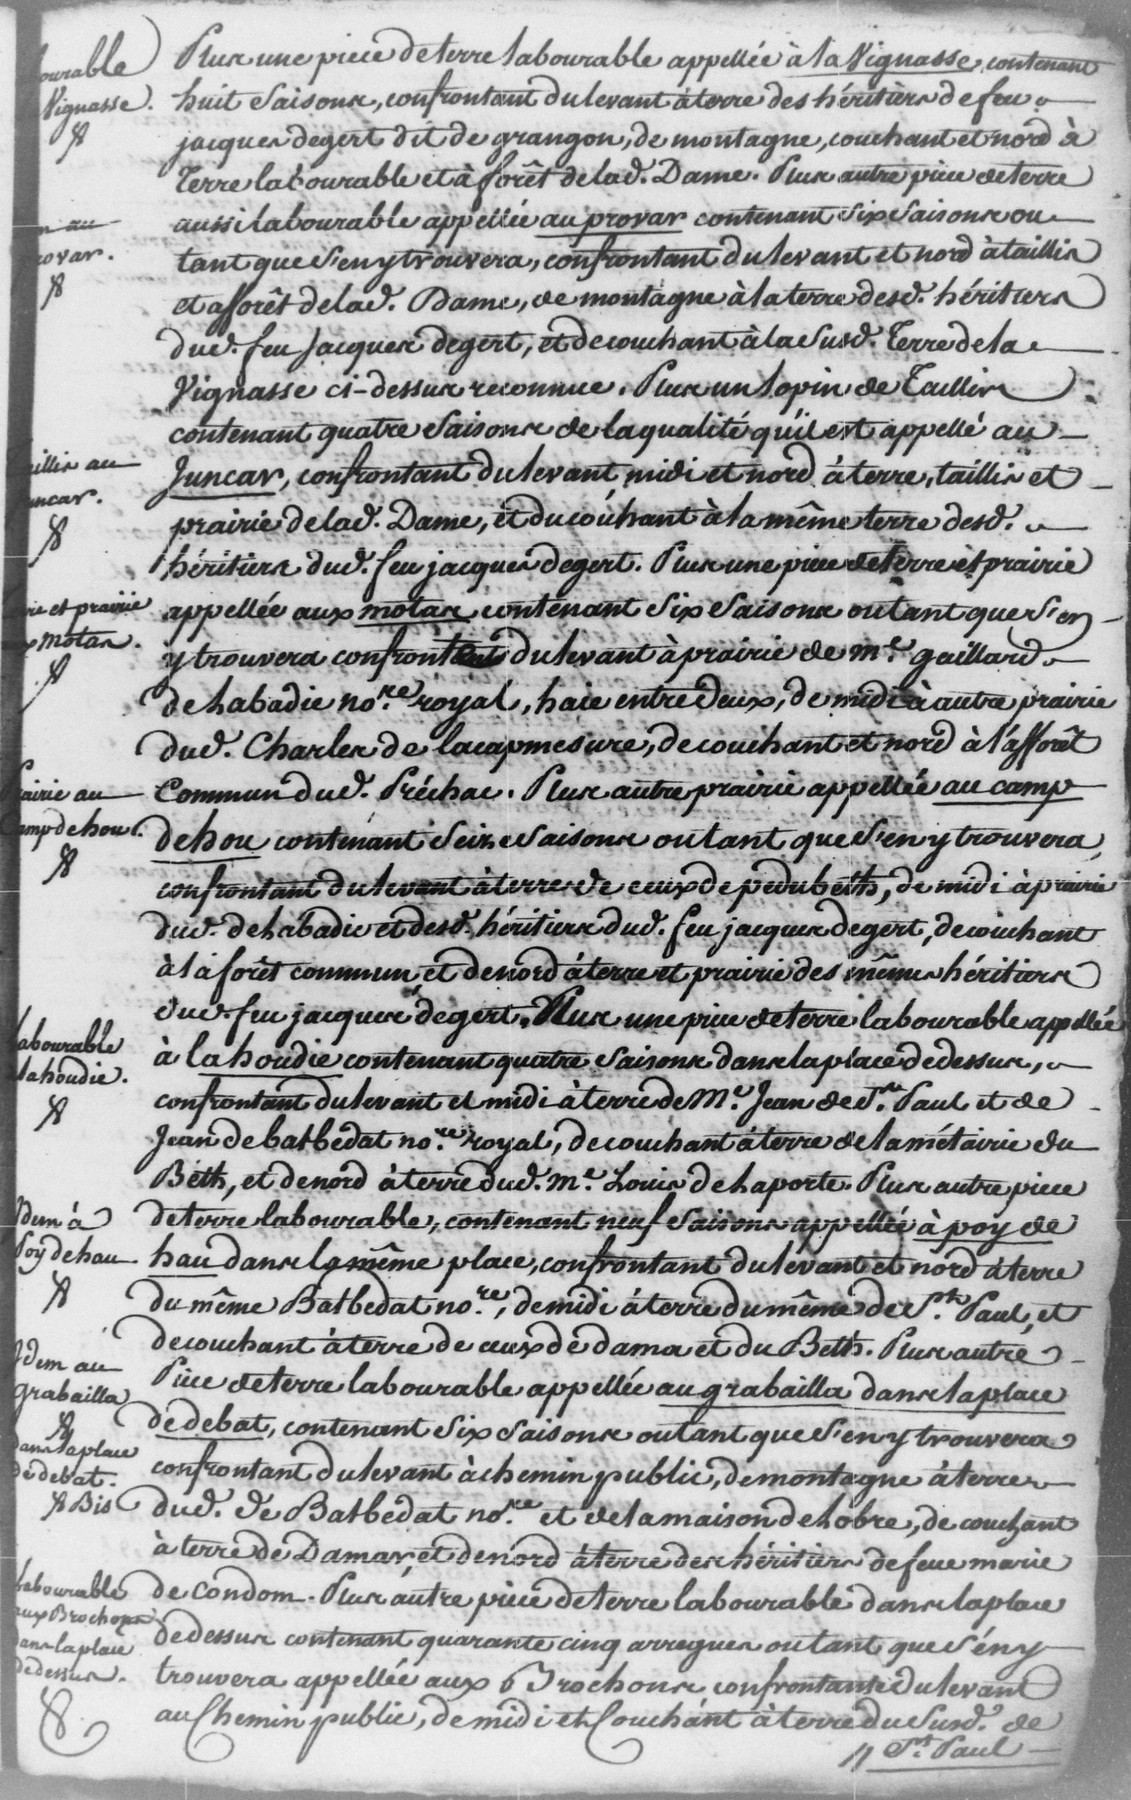 ourable
Vignasse.
Plus une piece de terre labourable appellée à la Vignasse, contenant
huit Saisons, confrontant du levant à terre des héritiers de feu
jacques degert dit de grangon, de montagne, couchant et nord à
Terre labourable et à forêt de lad. Dame. Plus autre piece de terre
n au
rovar.
aussi labourable appellée au provar contenant Six Saisons ou
tant que S'en y trouvera, confrontant du levant et nord à taillis
et afforêt de lad. Dame, de montagne à la terre desd. héritiers
dud. feu Jacques degert, et de couchant à la Susd. Terre de la
Vignasse ci-dessus reconnue. Plus un lopin de Taillis
contenant quatre Saisons de la qualité qu'il est appellé au
aillis au
uncar.
Juncar, confrontant du levant, midi et nord à terre, taillis et
prairie de lad. Dame, et du couchant à la même terre desd.
héritiers dud. feu jacques degert. Plus une piece de terre et prairie
rie et prairie
x motas.
appellée aux motas contenant Six Saisons ou tant que S'en
y trouvera confrontant du levant à prairie de me. gaillard
de Labadie no.re royal, haie entre deux, de midi à autre prairie
dud. Charles de lacapmesure, de couchant et nord à l'afforêt
Prairie au
Camp de hou.
Commun dud. Préchac. Plus autre prairie appellée au camp
de hou contenant Seize Saisons ou tant que S'en y trouvera,
confrontant du levant à terre de ceux de pedubeth, de midi à prairie
dud. de Labadie et desd. héritiers dud. feu jacques degert, de couchant
à la forêt commun, et de nord à terre et prairie des mêmes héritiers
dud. feu jacques degert. Plus une piece de terre labourable appellée
Labourable
à la houdie.
à la houdie contenant quatre Saisons dans la place de dessus,
confrontant du levant et midi à terre de Me. Jean de St. Paul et de
Jean de batbedat no.re royal, de couchant à terre de la métairie du
Beth, et de nord à terre dud. me. Louis de Laporte. Plus autre piece
Idem à
Poy de hau
de terre labourable, contenant neuf Saisons appellée à poy de
hau dans la même place, confrontant du levant et nord à terre
du même Batbedat no.re, de midi à terre du même de St. Paul, et
de couchant à terre de ceux de dama et du Beth. Plus autre
Idem au
grabailla
dans la place
de debat.
Bis
Piece de terre labourable appellée au grabailla dans la place
de debat, contenant Six Saisons ou tant que S'en y trouvera
confrontant du levant à chemin public, de montagne à terre
dud. de Batbedat no.re et de la maison de Lobre, de couchant
à terre de Damar et de nord à terre des héritiers de feue marie
Labourable
aux Brochons
dans la place
de dessus.
de Condom. Plus autre piece de terre labourable dans la place
de dessus contenant quarante cinq arregues ou tant que S'en y
trouvera appellée aux Brochons confrontante du levant
au Chemin public, de midi et Couchant à terre du Susd. de
St. Paul